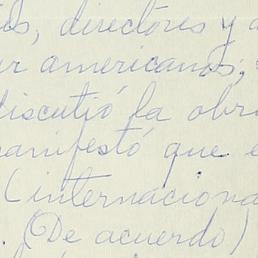 directores y
americanos,
discutió la obr
manifestó que e
(internaciona
. (De acuerdo)